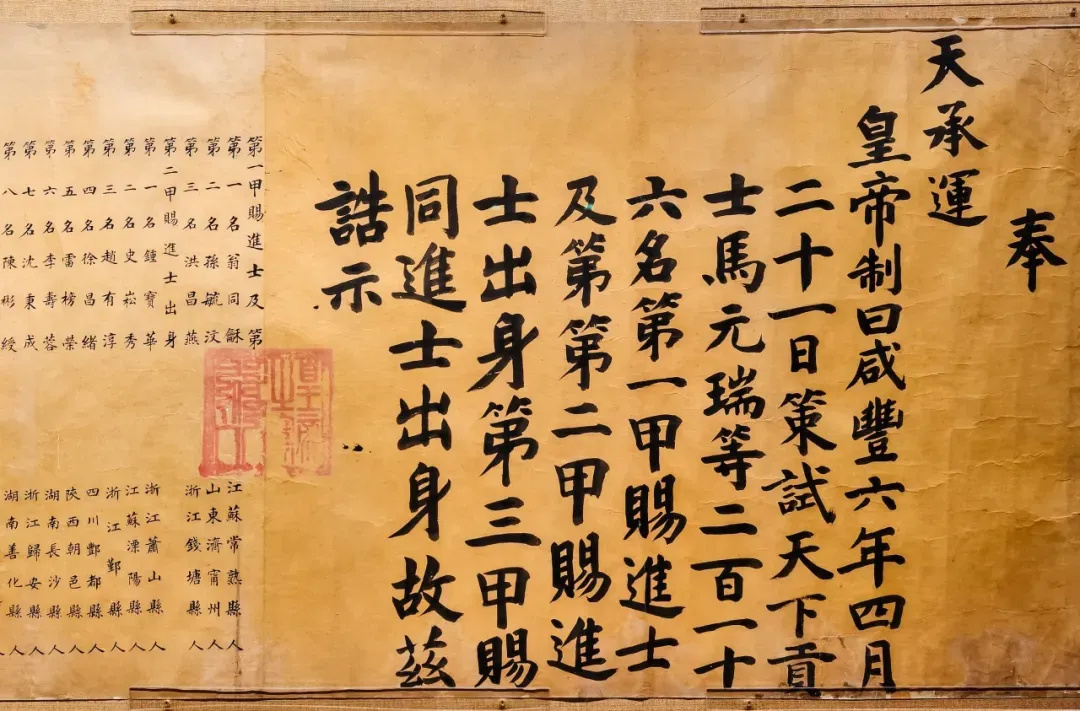 奉
天承運
皇帝制曰咸豐六年四月
二十一日策試天下貢
士馬元瑞等二百一十
六名第一甲賜進士
及第第二甲賜進
士出身第三甲賜
同進士出身故茲
誥示
第一甲賜進士及第
第一名翁同龢 江蘇常熟縣人
第二名孫毓汶 山東濟甯州人
第三名洪昌燕 浙江錢塘縣人
第二甲賜進士出身
第一名鍾寶華 浙江蕭山縣人
第二名史崧秀 江蘇溧陽縣人
第三名趙有淳 浙江鄞縣人
第四名徐昌緒 四川酆都縣人
第五名雷榜榮 陝西朝邑縣人
第六名李壽蓉 湖南長沙縣人
第七名沈秉成 浙江歸安縣人
第八名陳彬綬 湖南善化縣人